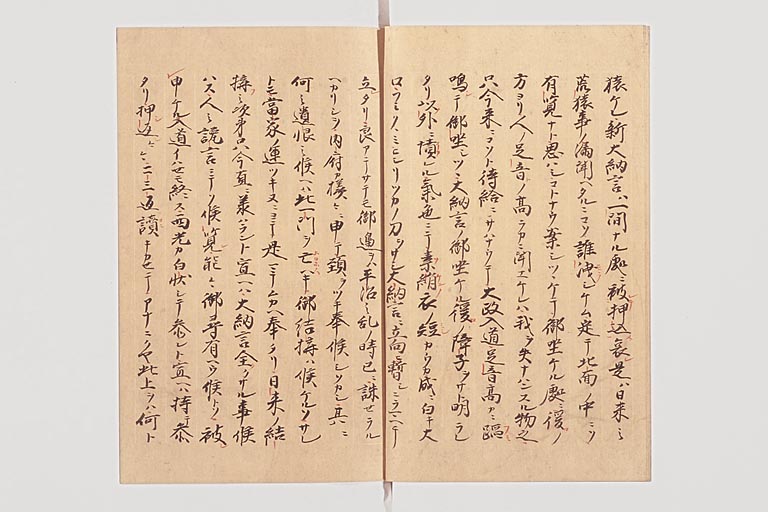 猿ケレ新大納言ハ一間ナル処ニ被押込哀是ハ日来ノ
荒猿事ノ漏聞ヘタルニコソ誰洩シケム定テ北面ノ中ニソ
有覧ナト思ハシコトナウ案シツヽケテ御坐ケル処ニ後ノ
方ヨリ人ノ足音ノ高ラカニ聞エケレハ我ヲ失ナハンスル物
只今来ニコソト待給ニサハナクテ大政入道足音高カニ踊
鳴テ御坐シツヽ大納言ノ御坐ケル後ノ障子ヲサト明ラレ
タリ以外ニ憤レル気色ニテ素絹衣ノ短カラカ成ニ白キ大
口フミ ヒシリツカノ刀ヲ 大納言ニ立向暫ニラマヘテ
立タリ良アテサテモ御辺ヲハ平治ノ乱ノ時已ニ誅セラル
ヘカリシヲ内府カ様々ニ申テ頸ヲツキ奉候シソカシ其ニ
何ノ遺恨ニ候ヘハ此一門ヲ亡ヘキ御結構ハ候ケルソサレ
トモ当家ノ運ツキヌニヨテ是マテ奉リ日来ノ結
構ノ次第只今直ニ承ハラント宣ヘハ大納言全クサル事候
ハス人ノ讒言ニテソ候覧能々御尋有ヘウ候トソ被
申ケル入道イハセモ終ス西光カ白状シテ参レト宣ヘハ持テ参
タリ押返々々二三返読キカセテアナニクヤ此上ヲハ何ト